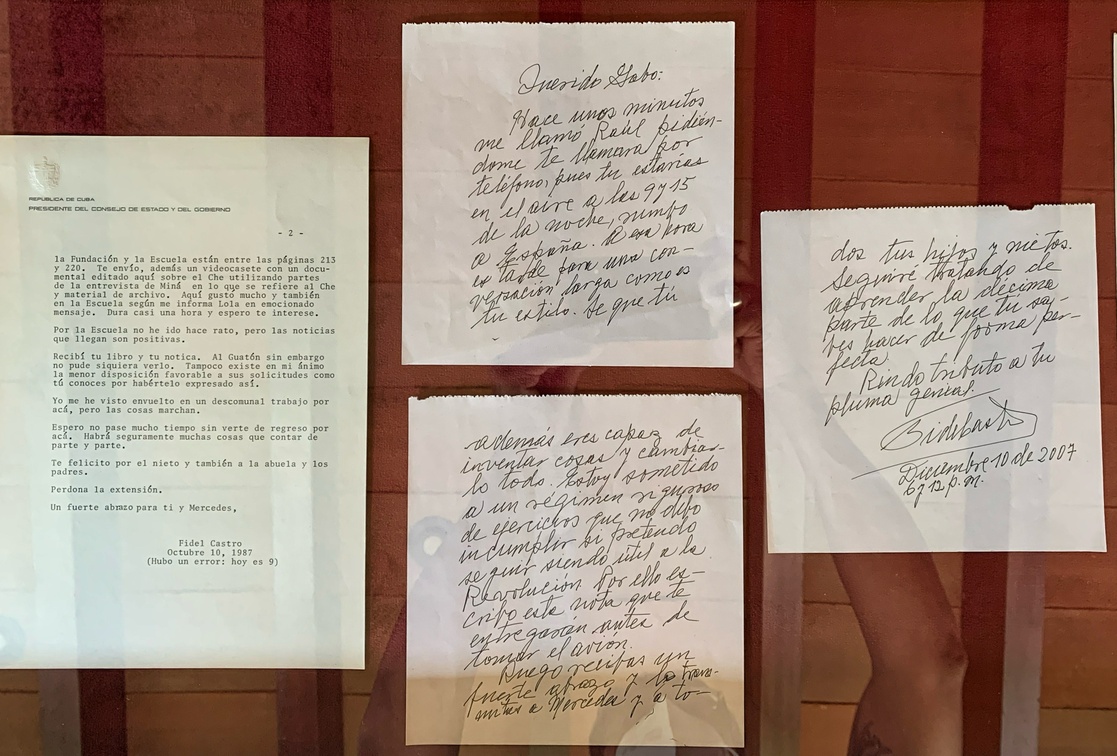 REPÚBLICA DE CUBA
PRESIDENTE DEL CONSEJO DE ESTADO Y DEL GOBIERNO
- 2 -
la Fundación y la Escuela están entre las páginas 213
y 220. Te envío, además un videocasete con un docu-
mental editado aquí sobre el Che utilizando partes
de la entrevista de Miná en lo que se refiere al Che
y material de archivo. Aquí gusto mucho y también
en la Escuela según me informa Lola en emocionado
mensaje. Dura casi una hora y espero te interese.
Por la Escuela no he ido hace rato, pero las noticias
que llegan son positivas.
Recibí tu libro y tu notica. Al Guatón sin embargo
no pude siquiera verlo. Tampoco existe en mi ánimo
la menor disposición favorable a sus solicitudes como
tú conoces por habértelo expresado así.
Yo me he visto envuelto en un descomunal trabajo por
acá, pero las cosas marchan.
Espero no pase mucho tiempo sin verte de regreso por
acá. Habrá seguramente muchas cosas que contar de
parte y parte.
Te felicito por el nieto y también a la abuela y los
padres.
Perdona la extensión.
Un fuerte abrazo para ti y Mercedes,
Fidel Castro
Octubre 10, 1987
(Hubo un error: hoy es 9)
Querido Gabo:
Hace unos minutos
me llamó Raúl pidién-
dome te llamara por
teléfono, pues tu estarías
en el aire a las 9 y 15
de la noche, rumbo
a España. A esa hora
es tarde para una con-
versación larga como es
tu estilo. Se que tú
además eres capaz de
inventar cosas y cambiar-
lo todo. Estoy sometido
a un régimen riguroso
de ejercicios que no debo
incumplir si pretendo
seguir siendo útil a la
Revolución. Por ello es-
cribo esta nota que te
entregarán antes de
tomar el avión.
Ruego recibas un
fuerte abrazo y lo trans-
mitas a Mercedes y a to-
dos tus hijos y nietos.
Seguiré tratando de
aprender la décima
parte de lo que tú sa-
bes hacer de forma per-
fecta.
Rindo tributo a tu
pluma genial.
Diciembre 10 de 2007
6 y 12 p.m.